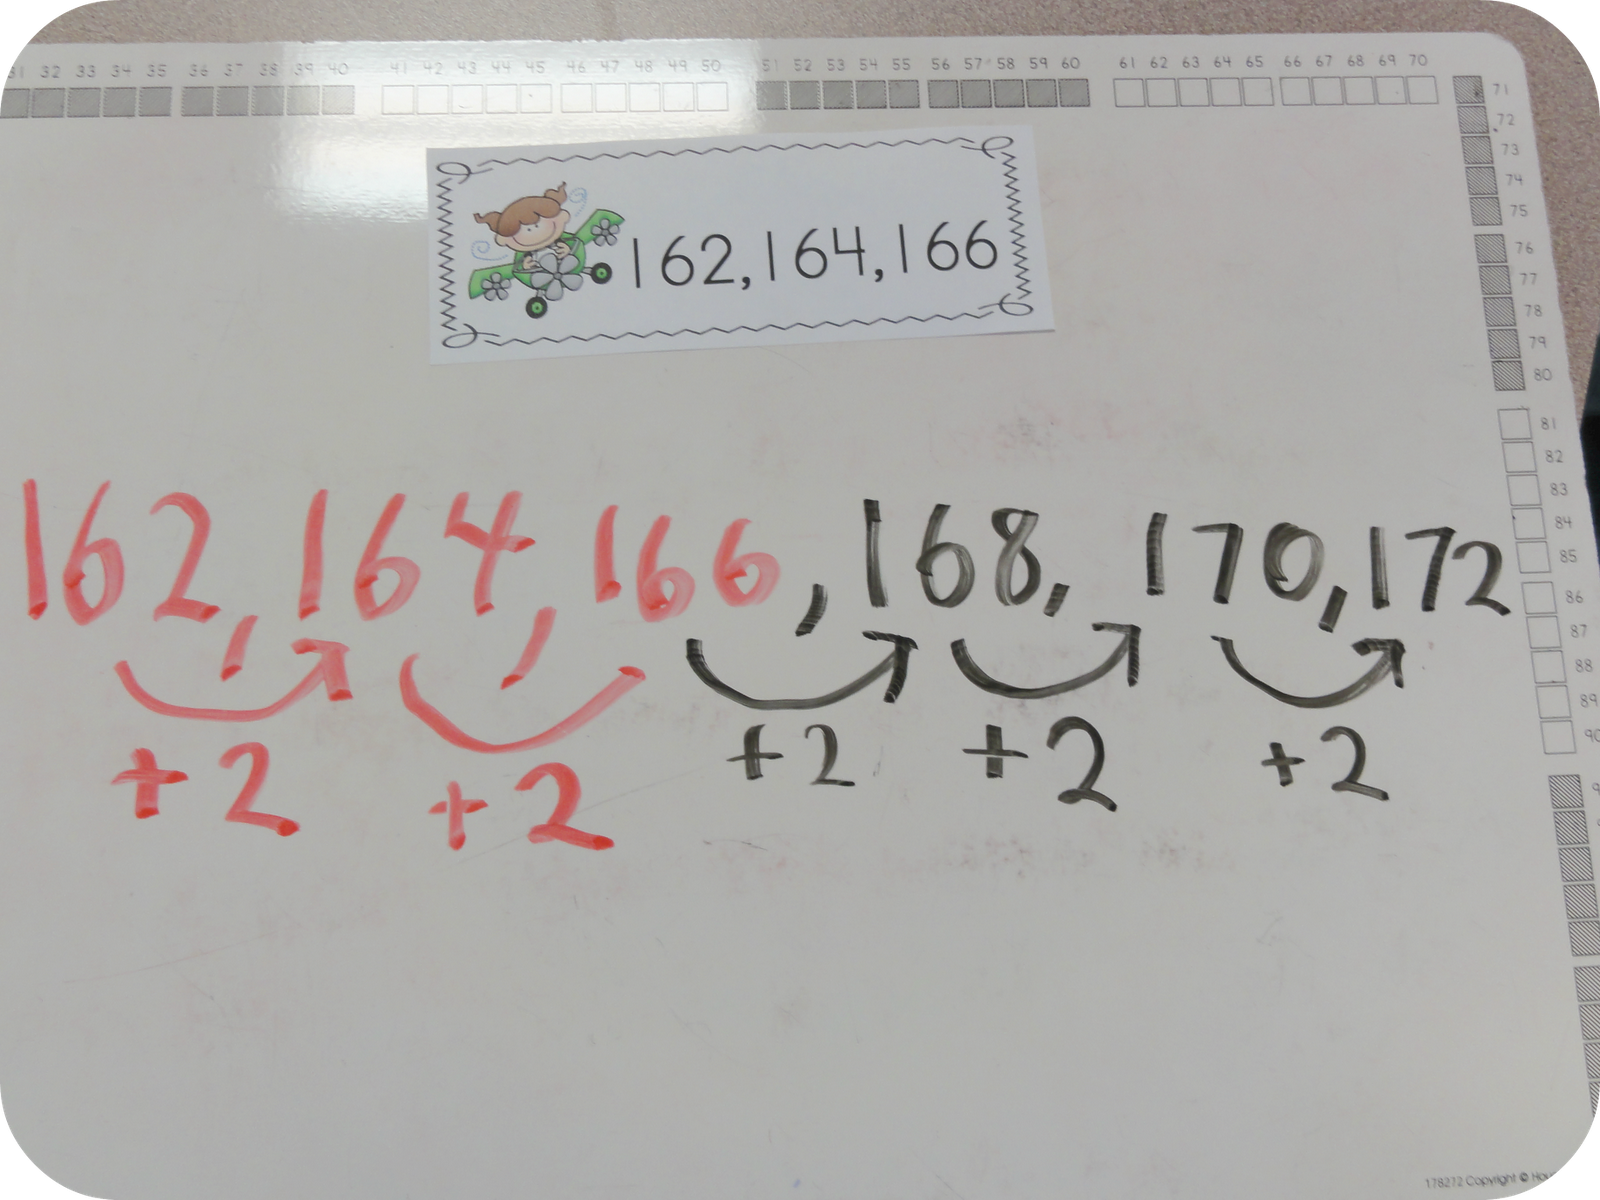 31 32 33 34 35 36 37 38 39 40 41 42 43 44 45 46 47 48 49 50 51 52 53 54 55 56 57 58 59 60 61 62 63 64 65 66 67 68 69 70
71
72
73
74
75
76
77
78
79
80
81
82
83
84
85
86
87
88
89
90
162, 164, 166
162, 164, 166, 168, 170, 172
+2 +2 +2 +2 +2
178272 Copyright ©